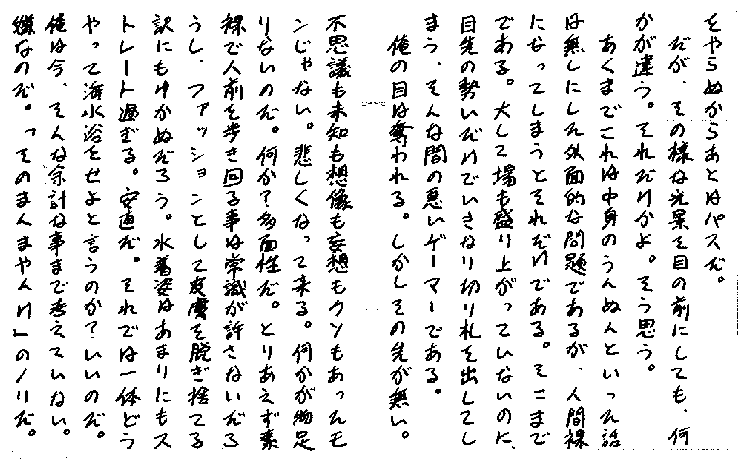 をやらぬからあとはパスだ。
だが、その様な光景を目の前にしても、何
かが違う。それだけかよ。そう思う。
あくまでこれは中身のうんぬんといった話
は無しにした外面的な問題であるが、人間裸
になってしまうとそれだけである。そこまで
である。大して場も盛り上がっていないのに、
目先の勢いだけでいきなり切り札を出してし
まう、そんな間の悪いゲーマーである。
俺の目は奪われる。しかしその先が無い。
不思議も未知も想像も妄想もクソもあったモ
ンじゃない。悲しくなって来る。何かが物足
りないのだ。何か？多面性だ。とりあえず素
裸で人前を歩き回る事は常識が許さないだろ
うし、ファッションとして皮膚を脱ぎ捨てる
訳にもいかぬだろう。水着姿はあまりにもス
トレート過ぎる。安直だ。それでは一体どう
やって海水浴をせよと言うのか？いいのだ。
俺は今、そんな余計な事まで考えていない。
嫌なのだ。「そのまんまやんけ」のノリだ。